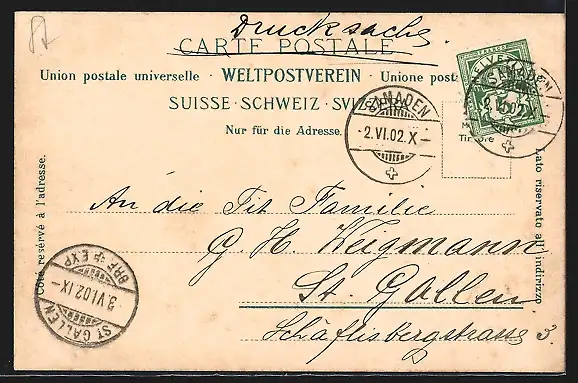 Drucksache
CARTE POSTALE
Union postale universelle · WELTPOSTVEREIN · Unione post
SUISSE · SCHWEIZ · SVIZZERA
Nur für die Adresse.
FRANCO
HELVETIA
SAMADEN
2.VI.02.X–
SAMADEN
2.VI.02.X–
Timbre
Côté réservé à l'adresse.
Lato riservato all' indirizzo
An die Tit. Familie
G. H. Weigmann
St. Gallen
Schäflisbergstrasse 3.
ST GALLEN
3.VI.02.IX–
BRF. EXP.